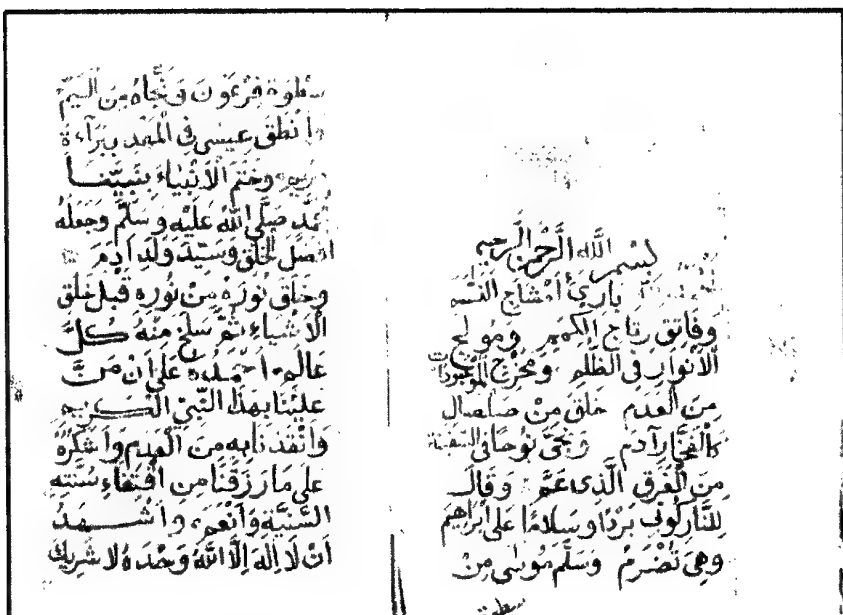 بسم الله الرحمن الرحيم
بارئ أمشاج النسم
وفاتق رتاج الكمم ومولج
الأنوار في الظلم ومخرج الموجودات
من العدم خلق من صلصال
كالفخار آدم ونجى نوحا في السفينة
من الغرق الذي عم وقال
للنار كوني بردا وسلاما على إبراهيم
وهي تضرم وسلم موسى من
سطوت
سطوة فرعون ونجاه من اليم
وأنطق عيسى في المهد ببراءة
وختم الأنبياء بنبينا
محمد صلى الله عليه وسلم وجعله
أفضل الخلق وسيد ولد آدم
وخلق نوره من نوره قبل خلق
الأشياء ثم سلخ منه كل
عالم أحمده على أن من
علينا بهذا النبي الكريم
وأنقذنا به من العدم وأشكره
على ما رزقنا من اقتفاء سنته
السنية وأنعم وأشهد
أن لا إله إلا الله وحده لا شريك